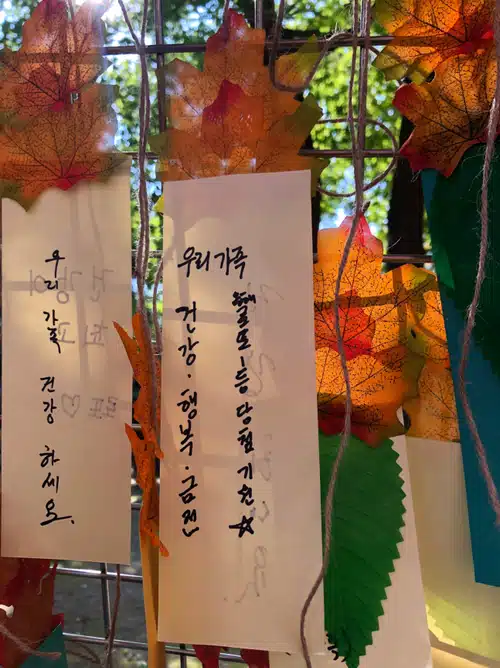 우리 가족 건강 하세요.
우리가족
건강·행복·금전
1등당첨기원☆